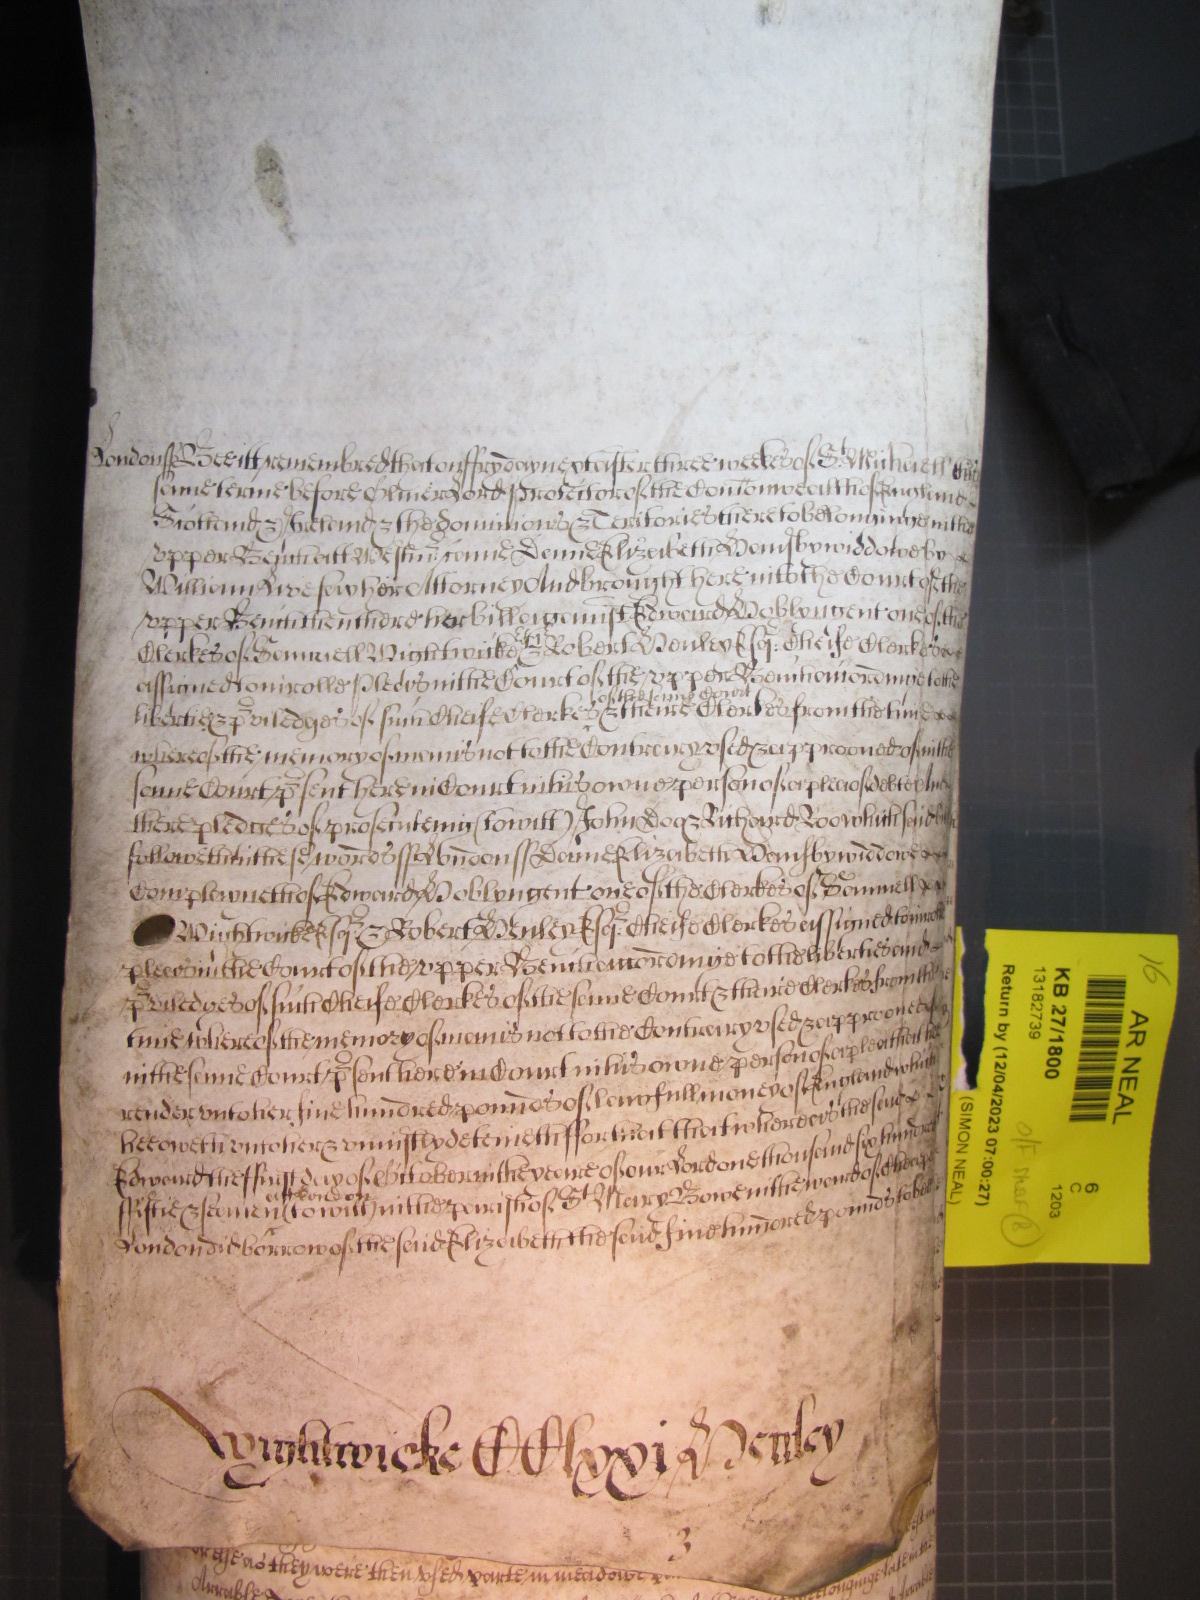 London ss Bee itt remembred that on ffryday next after three weekes of St Michaell this
same terme before Oliver Lord Protector of the Comonwealth of England
Scotland & Ireland & the Dominions & Teritories thereto belonginge in the
upper Bench att Westm came Dame Elizabeth Hamsby widdowe by
William his Attorney And brought here into the Court of the
upper Bench then there her bill against Edward Moblyn gent one of the
Clerkes of Samuell Wightwicke Esq & Robert Henley Esq: Cheife Clerkes
assigned to inrolle Pleas in the Court of the upper Bench accordinge to the
liberties & priviledges of such Cheife Clerkes of the same Court & theire Clerkes from the time
whereof the memory of man is not to the Contrary used & approoved of in the
same Court psent here in Court in his owne person of a plea of debte And
there pledges of prosecuteing (to witt) John Doe & Richard Roo which said bill
followeth in these words ss London ss Dame Elizabeth Hamsby widdowe
Complaineth of Edward Moblyn gent one of the Clerkes of Samuell
Wightwicke Esq & Robert Henley Esq: Cheife Clerkes assigned to inrolle
pleas in the Court of the upper Bench accordinge to the liberties and
priviledges of such Cheife Clerkes of the same Court & theire Clerkes from the
time whereof the memory of man is not to the Contrary used & approoved of
in the same Court psent here in Court in his owne person of a plea that hee
render unto her five hundred pounds of lawfull money of England which
hee oweth unto her & uniustly deteineth ffor that that whereas the said
Edward the ffirst day of October in the yeare of our Lord one thousand six hundred
ffiftie & seaven att London (to witt) in the parish of St Mary Bowe in the ward of Cheape
London did borrow of the said Elizabeth the said five hundred pounds to bee
Wightwicke CClxxi Henley
3
or else as they were then used parte in meadowe
Arrable
16
AR NEAL
KB 27/1800
13182739
Return by (12/04/2023 07:00:27)
(SIMON NEAL)
6
C
1203